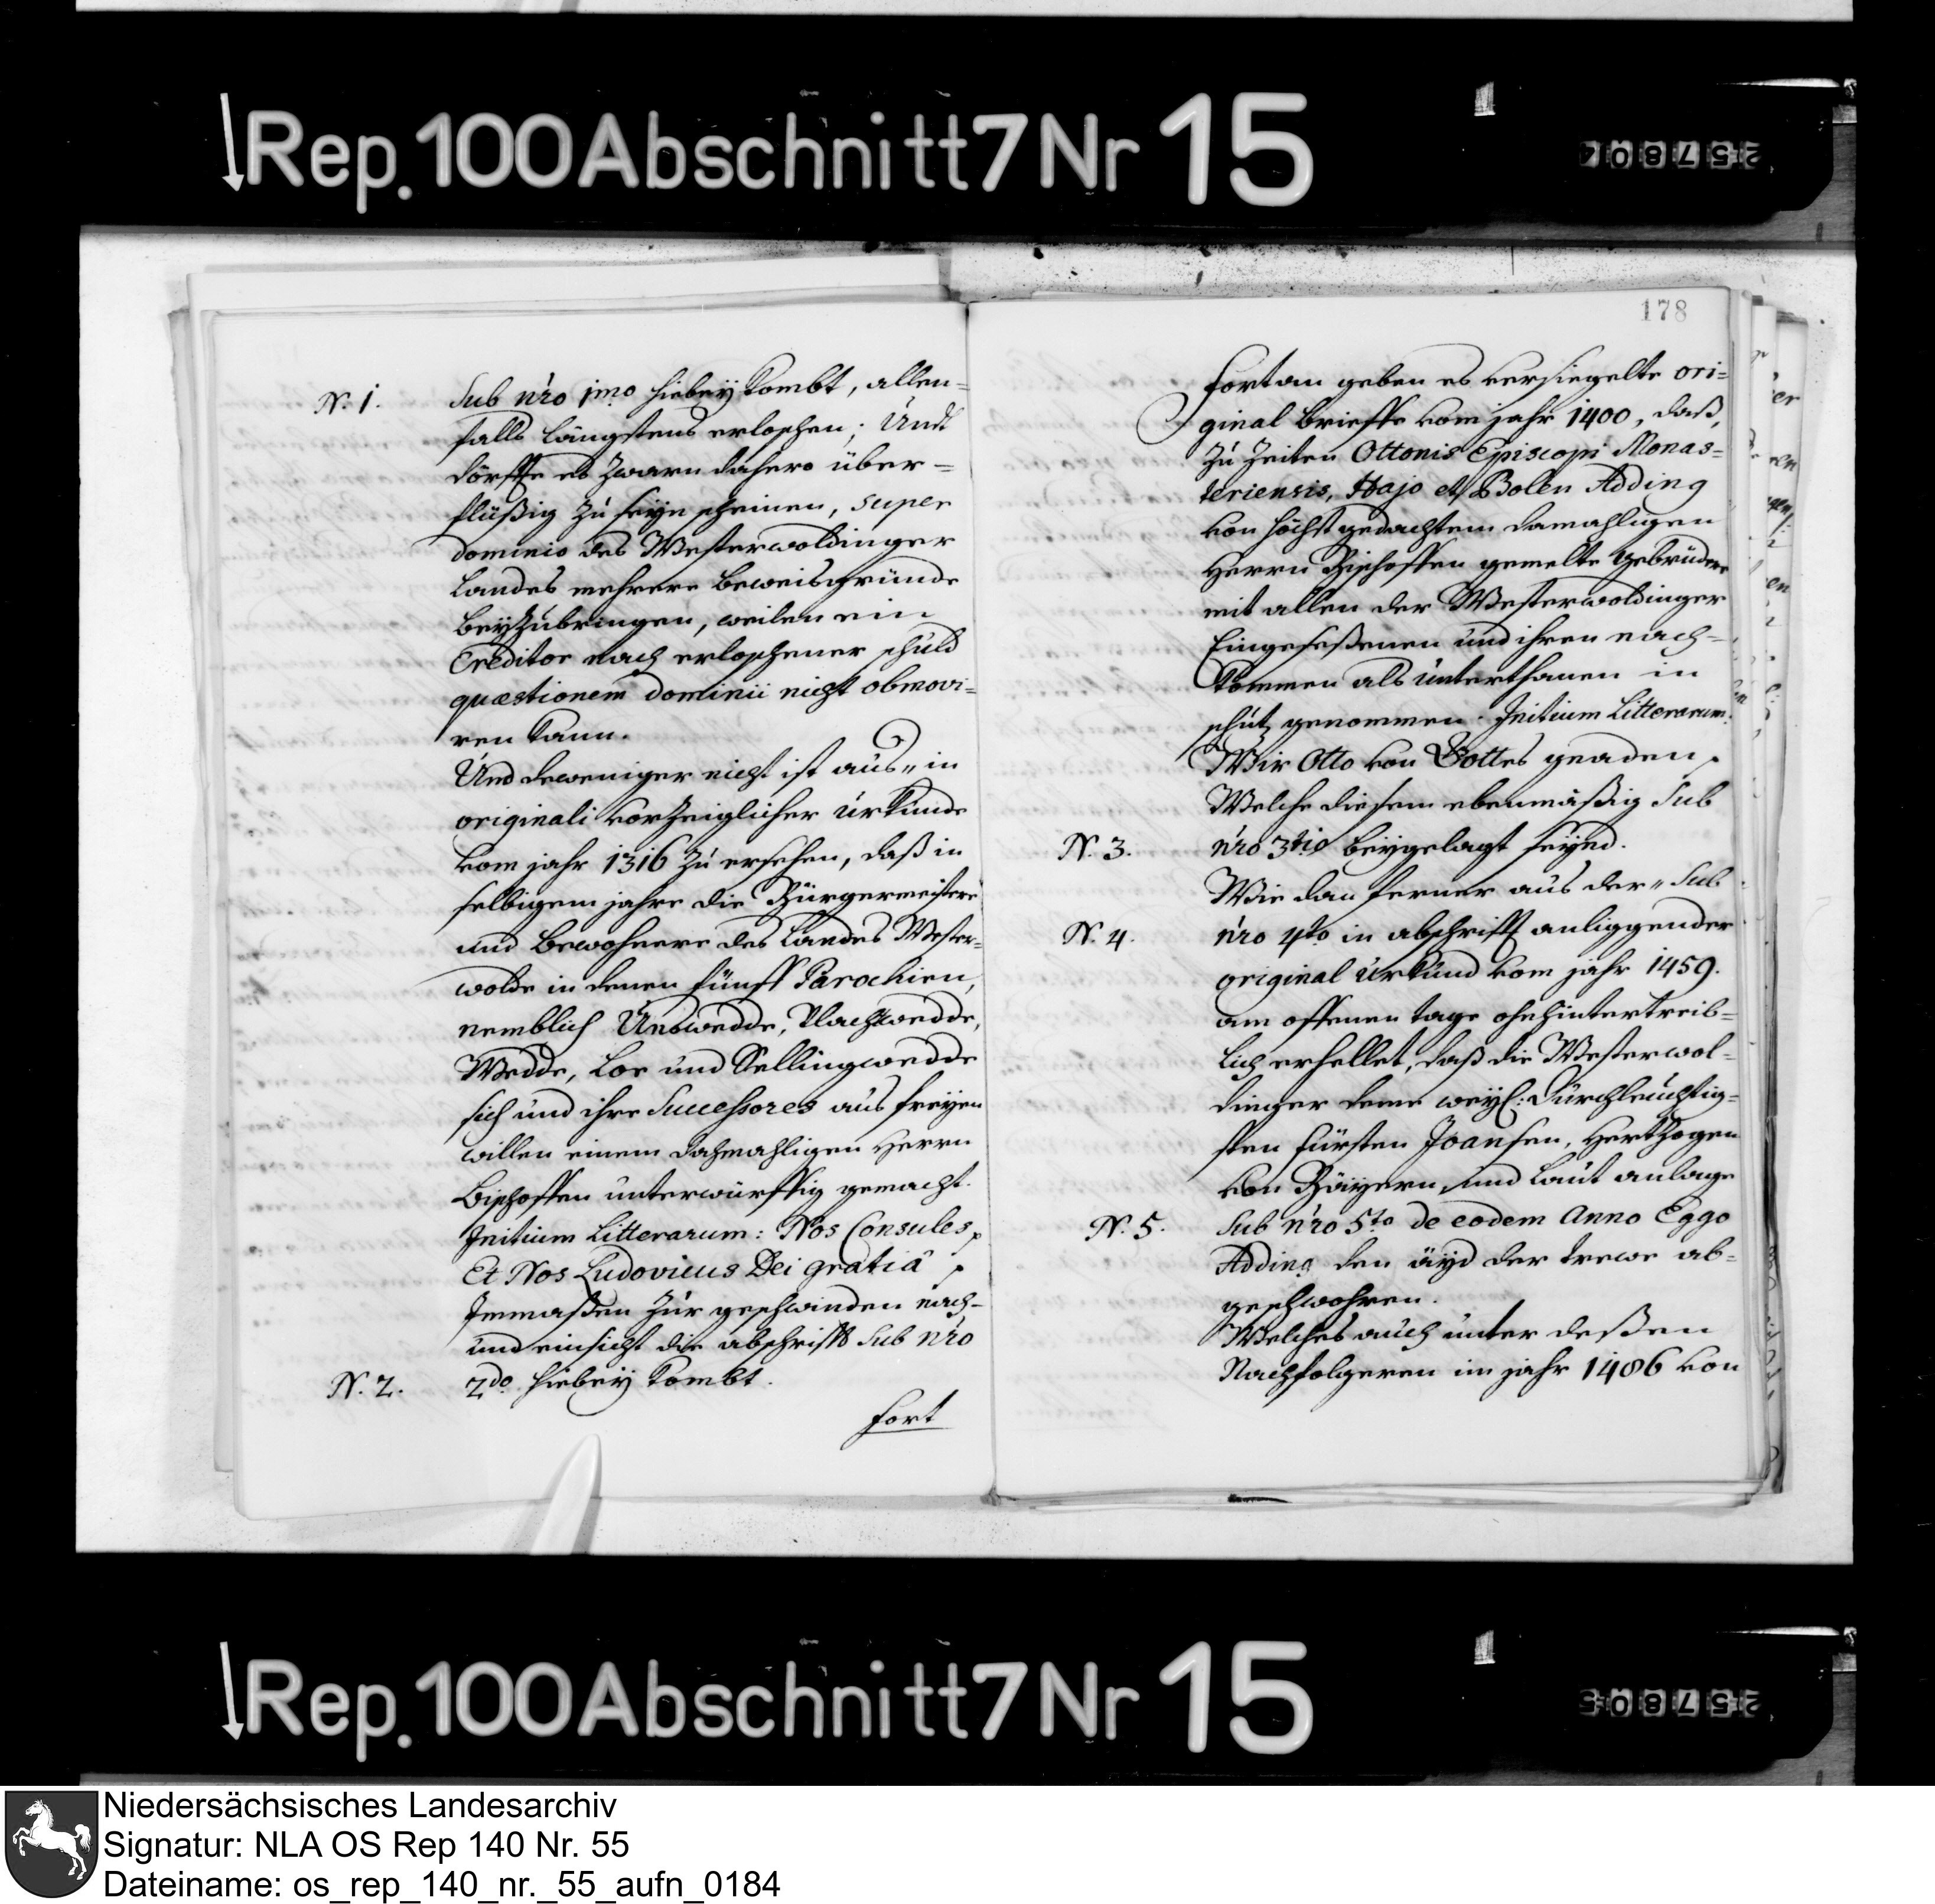 Rep. 100 Abschnitt 7 Nr 15
257804
N. 1.
Sub nro 1mo hiebey kombt, allen=
falls längstens erloschen; Und
dörffe es zwarn dahero über=
flüßig zu seyn scheinen, super
dominio des Westerwoldinger
Landes mehrere beweisgründe
beyzubringen, weilen ein
Creditor nach erloschener schuld
quæstionem dominii nicht obmovi=
ren kann.
Und deweniger nicht ist aus " in
originali vorzeiglicher urkunde
vom jahr 1316 zu ersehen, daß in
selbigem jahre die Bürgermeistere
und bewohnere des Landes Wester=
wolde in denen fünff Parochien,
nemblich Unswedde, Vlachtwedde,
Wedde, Loe und Sellingwedde
sich und ihre Successores aus freyen
willen einem dahmahligen Herrn
Bischoffen unterwürffig gemacht.
Initium Litterarum: Nos Consules
Et Nos Ludovicus Dei gratiâ
Inmaßen zur geschwinden nach=
und einsicht die abschrifft Sub nro
N. 2.
2do hiebey kombt.
fort
178
fortan geben es versiegelte ori=
ginal brieffe vom jahr 1400, daß,
zu zeiten Ottonis Episcopi Monas=
teriensis, Hajo et Bolen Adding
von höchstgedachtem damahligen
Herrn Bischoffen gemelte gebrüdere
mit allen der Westerwoldinger
Eingeseßenen und ihren nach=
kommen als unterthanen in
schutz genommen. Initium Litterarum.
Wir Otto von Gottes gnaden
Welche diesem ebenmäßig Sub
N. 3.
nro 3tio beygelagt seynd.
Wie dan ferner aus der " Sub
N. 4.
nro 4to in abschrifft anliggender
original urkund vom jahr 1459.
am offenen tage ohnhintertreib=
lich erhellet, daß die Westerwol=
dinger deme weyl: Durchleuchtig=
sten fürsten Joansen, Hertzogen
von Bäyern, und laut anlage
N. 5.
Sub nro 5to de eodem Anno Eggo
Adding den äyd der trewe ab=
geschwohren.
Welches auch unter deßen
Nachfolgeren im jahr 1486 von
Rep. 100 Abschnitt 7 Nr 15
257805
Niedersächsisches Landesarchiv
Signatur: NLA OS Rep 140 Nr. 55
Dateiname: os_rep_140_nr._55_aufn_0184